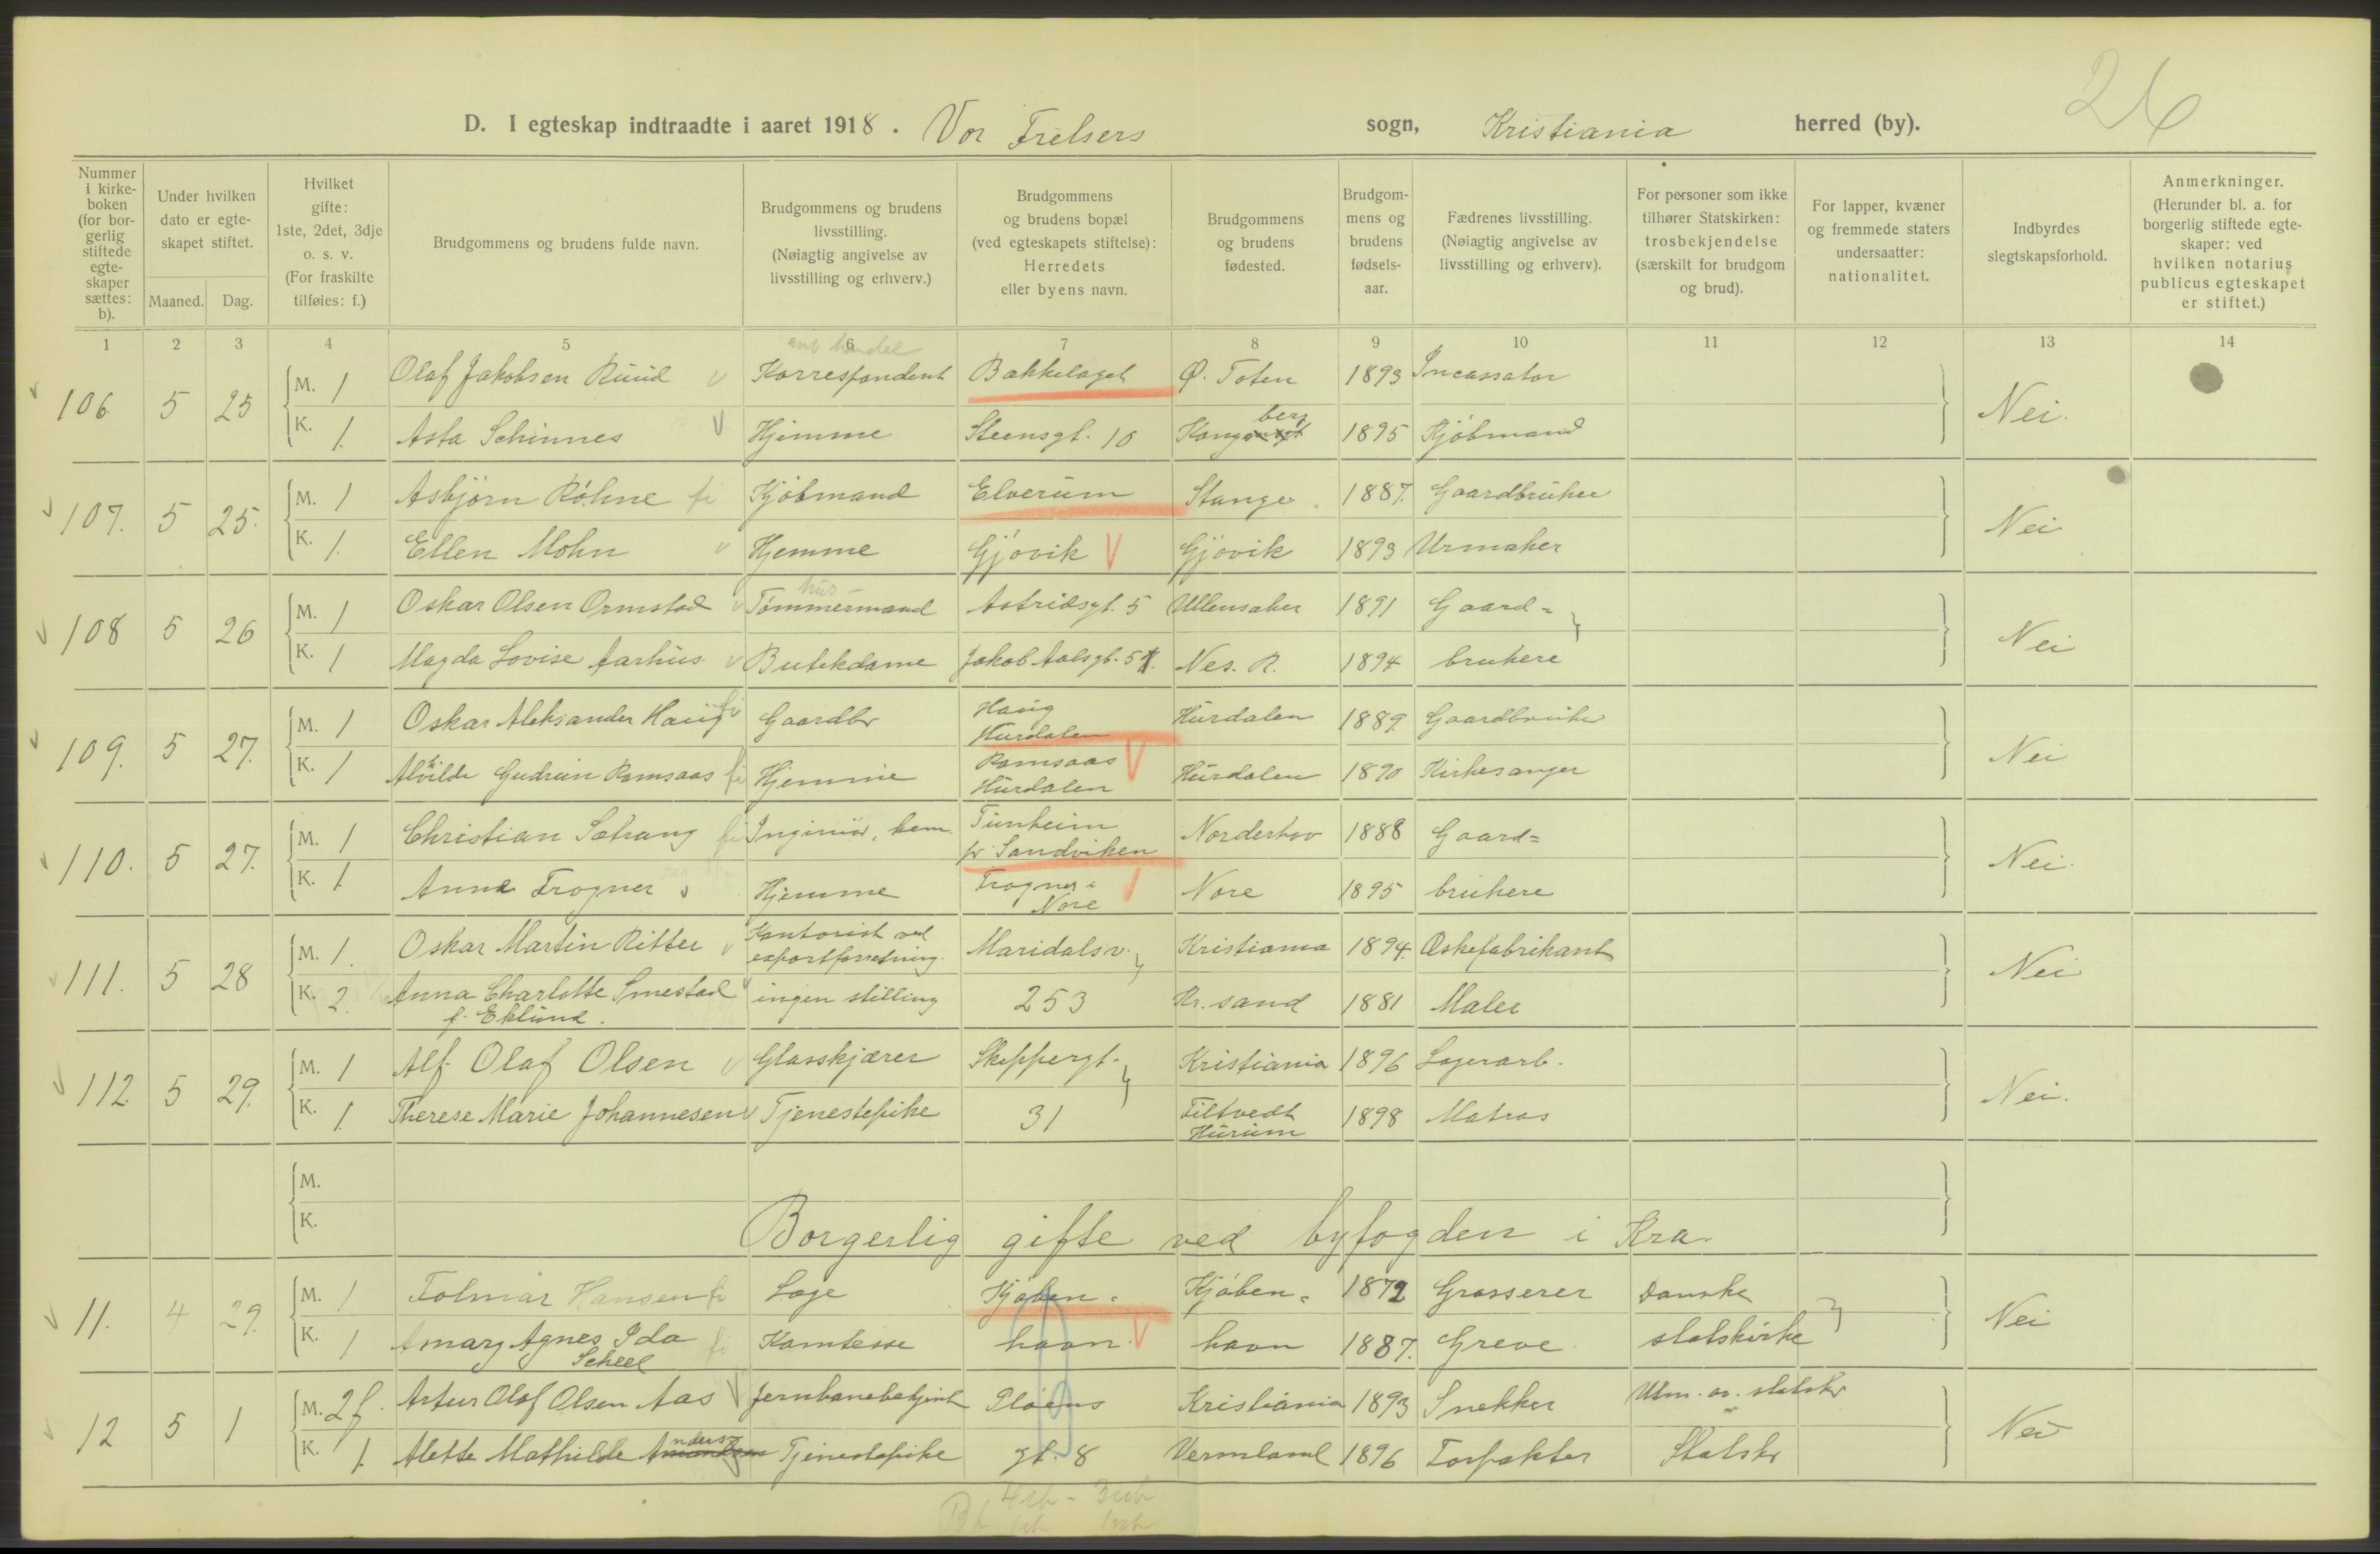 26
D. I egteskap indtraadte i aaret 1918. Vor Frelsers sogn, Kristiania herred (by).
Nummer i kirke-boken (for bor-gerlig stiftede egte-skaper sættes: b).
Under hvilken dato er egte-skapet stiftet.
Maaned. Dag.
Hvilket gifte: 1ste, 2det, 3dje o. s. v. (For fraskilte tilføies: f.)
Brudgommens og brudens fulde navn.
Brudgommens og brudens livsstilling. (Nøiagtig angivelse av livsstilling og erhverv.)
Brudgommens og brudens bopæl (ved egteskapets stiftelse): Herredets eller byens navn.
Brudgommens og brudens fødested.
Brudgom-mens og brudens fødsels-aar.
Fædrenes livsstilling. (Nøiagtig angivelse av livsstilling og erhverv).
For personer som ikke tilhører Statskirken: trosbekjendelse (særskilt for brudgom og brud).
For lapper, kvæner og fremmede staters undersaatter: nationalitet.
Indbyrdes slegtskapsforhold.
Anmerkninger. (Herunder bl. a. for borgerlig stiftede egte-skaper: ved hvilken notarius publicus egteskapet er stiftet.)
1 2 3 4 5 6 7 8 9 10 11 12 13 14
106 5 25 M. 1 Olaf Jakobsen Ruud Korrespondent Bakkelaget Ø. Toten 1893 Incassator Nei.
K. 1. Asta Schinnes Hjemme Steensgt. 10 Kongsberg 1895 Kjøbmand
107. 5 25. M. 1 Asbjørn Røhne fi Kjøbmand Elverum Stange 1887. Gaardbruker Nei
K. 1. Ellen Mohn Hjemme Gjøvik Gjøvik 1893 Urmaker
hus-
108 5 26 M. 1 Oskar Olsen Ormstad Tømmermand Astridsgt. 5 Ullensaker 1891 Gaard= Nei
K. 1 Magda Lovise Aarhus Butikdame Jakob Aalsgt. 5 Nes. R. 1894 brukere
109. 5 27. M. 1 Oskar Aleksander Haug fi Gaardbr Haug Hurdalen Hurdalen 1889 Gaardbruker Nei
K. 1 Alvilde Gudrun Ramsaas fi Hjemme Ramsaas Hurdalen Hurdalen 1890 Kirkesanger
110. 5 27. M. 1 Christian Sætrang fi Ingeniør, kem. Tunheim pr Sandviken Norderhov 1888 Gaard= Nei.
K. 1. Anna Trogner Hjemme Nore Nore 1895 brukere
111. 5 28 M. 1. Oskar Martin Ritter Kontorist ved exportforretning. Maridalsv. Kristiania 1894. Æskefabrikant Nei
K. 2. Anna Charlotte Smestad f. Eklund. ingen stilling 253 Kr. sand 1881 Maler
112. 5 29. M. 1 Alf Olaf Olsen Glasskjærer Skippergt. Kristiania 1896 Lagerarb. Nei.
K. 1. Therese Marie Johannesen Tjenestepike 31 Tiltvedt Hurum 1898 Matros
M.
K. Borgerlig gifte ved byfogden i Kra.
11. 4 29. M. 1 Folmar Hansen fi Læge Kjøben= Kjøben= 1872 Grosserer Danske Nei
K. 1 Amary Agnes Ida Scheel fi Komtesse havn. havn 1887. Greve statskirke
12 5 1 M. 2 f. Artur Olaf Olsen Aas Jernbanebetjent Pløens Kristiania 1893 Snekker Utm. av. statskr Nei
K. 1. Alette Mathilde Tjenestepike gt. 8 Vermland 1896 Torpakter Statskr